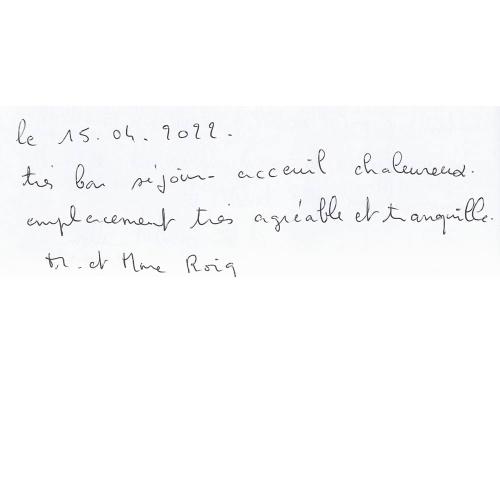 le 15.04.2022.
très bon séjour - acceuil chaleureux.
emplacement très agréable et tranquille.
Mr. et Mme Roig